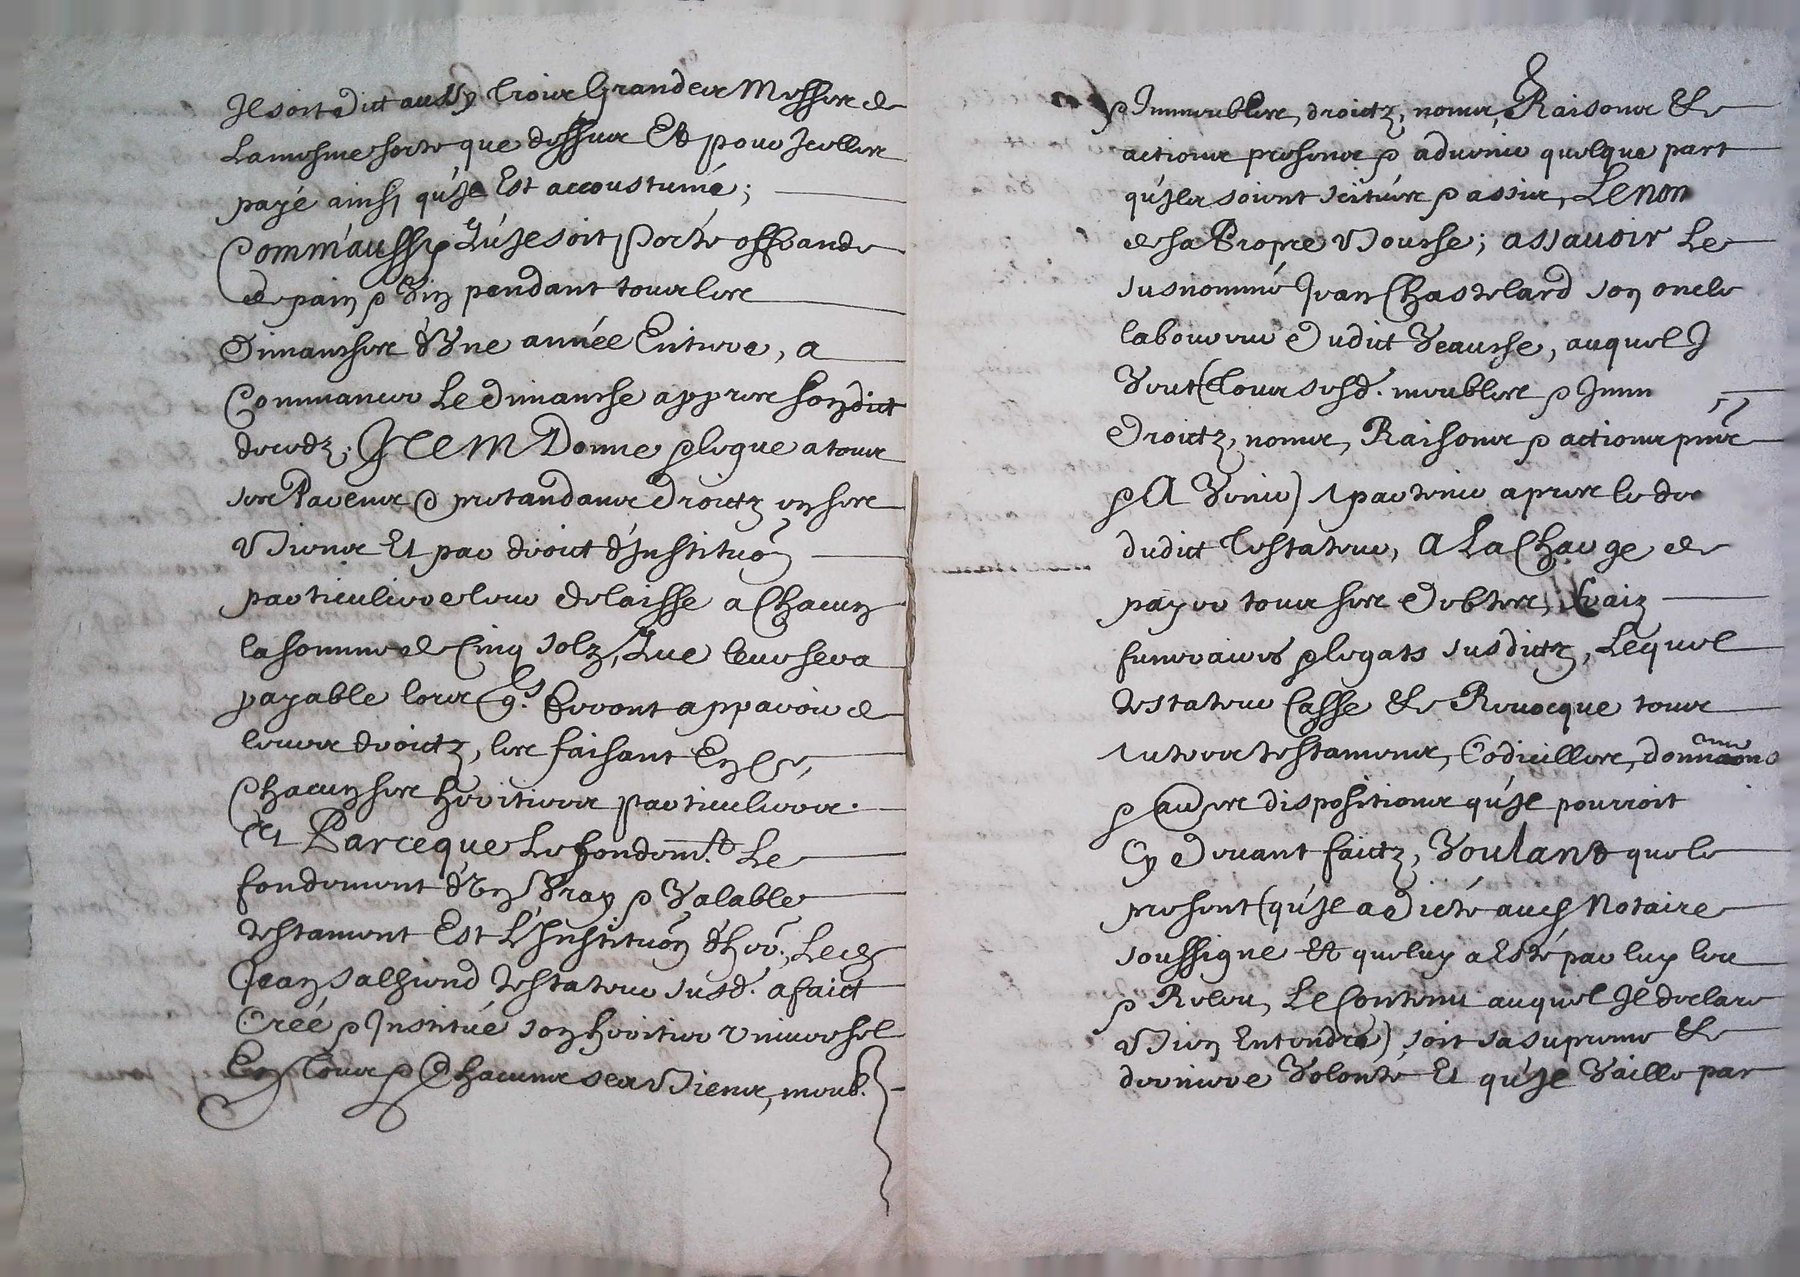 Il soit dict aussy Trois Grandes Messes de
La mesme sorte que dessus Et pour Icelles
payé ainsi qu'Il Est accoustumé;
Comm'aussy Qu'Il soit Porté offrande
de pain & Vin pendant tous les
Dimanches d'Vne année Entiere, a
Commancer Le dimanche appres son dict
decedz; ITEM Donne & legue a tous
ses Parens & pretandans droictz en ses
Biens Et par droict d'Instituõn
particuliere leur delaisse a Chacun
la somme de Cinq solz, Que leur sera
payable lors qs. feront apparoir de
leurs droictz, les faisant En Ce,
Chacun ses heritiers particuliers.
Et Parceque Le fondemt. Le
fondement d'Vn Vray & Valable
testament Est L'Instituõn d'her., Led.
Jean salhiend testateur susd. a faict
Creé & Institué son heritier Vniuersel
En Tous & Chacuns ses Biens, meub.
& Immeubles, droictz, noms, Raisons &
actions presens & aduenir quelque part
qu'Ils soient scitués & assis, Le nom
de sa Propre Bouche; assauoir Le
susnommé Jean Chastelard son oncle
laboureur dudict Veausse, auquel I
Veut (Tous sesd. meubles & Imm
droictz, noms, Raisons & actions pñs
& A Venir) apartenir apres le dec
dudict Testateur, A La Charge de
payer tous ses debtes, fraiz
funeraires & legats susdictz, Lequel
testateur Casse & Reuocque tous
autres testamens, Codicilles, donnaons
& autres dispositions qu'Il pourroit
Cy deuant faictz, Voulant que le
present (qu'Il a dicté au Notaire
soussigné Et que luy a Esté par luy leu
& Releu, Le Contenu auquel Il declare
Bien Entendre) soit sa supreme &
derniere Volonté Et qu'Il Vaille par